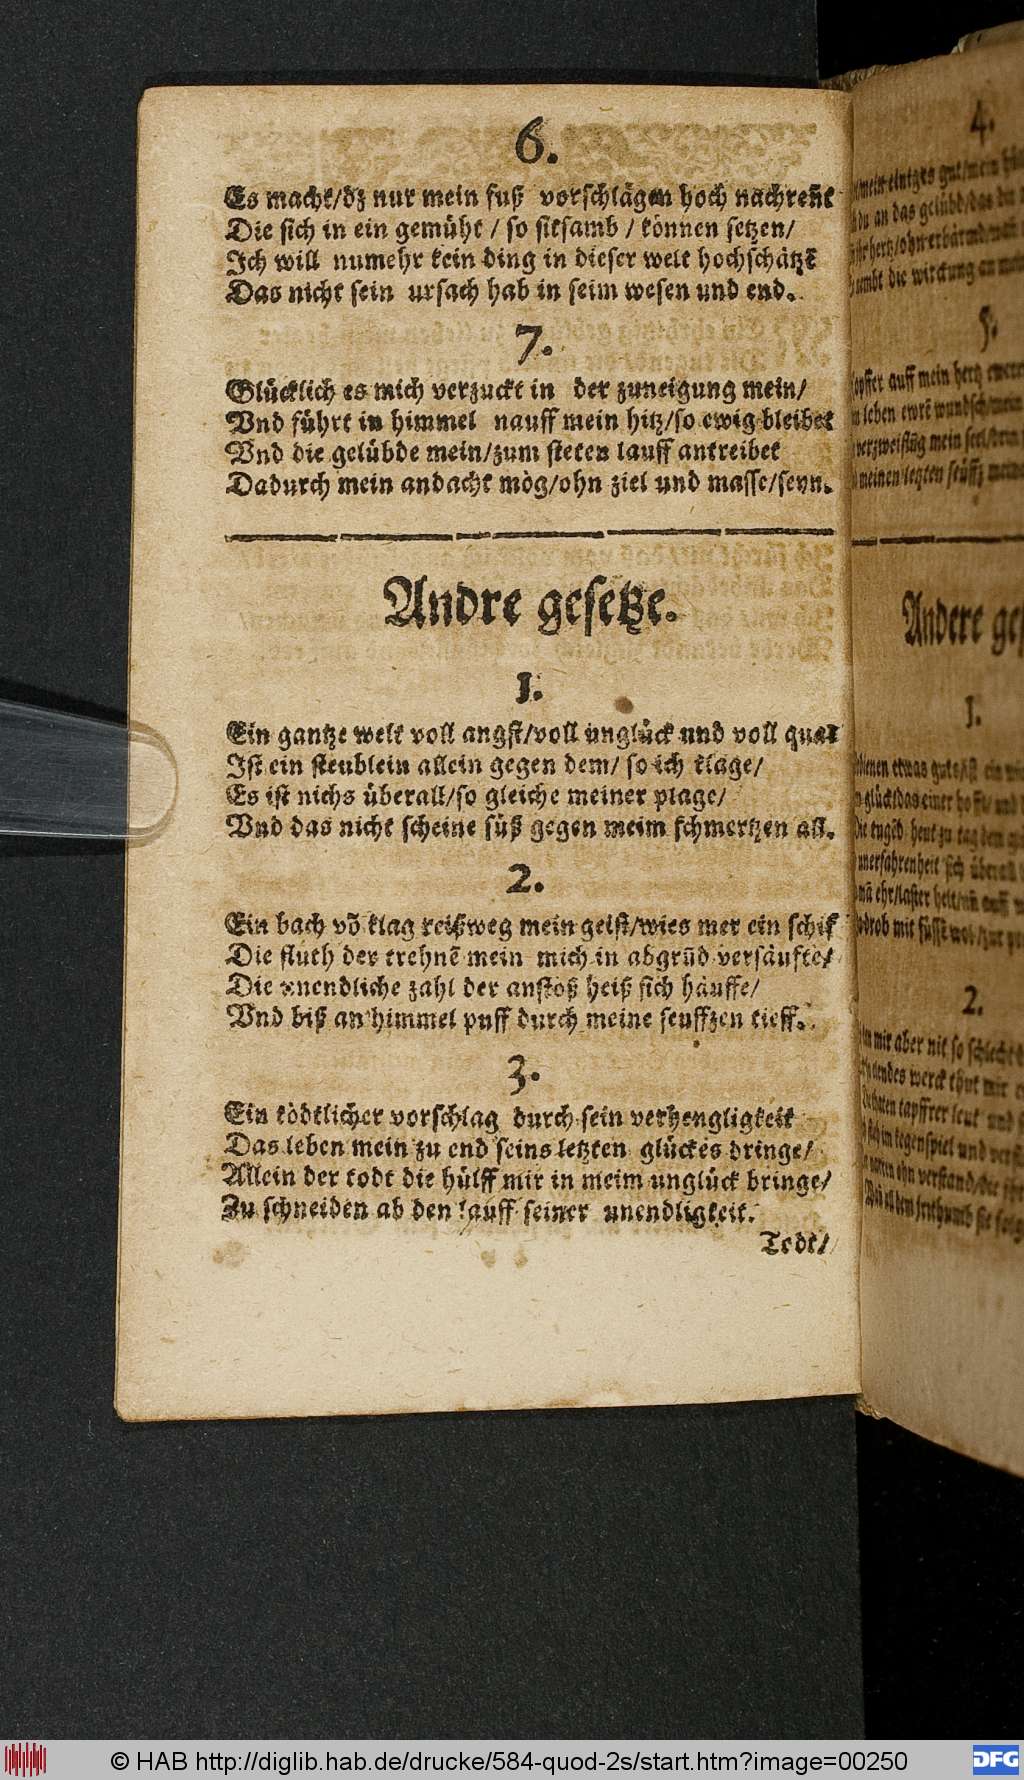 6.
Es macht/dz nur mein fuß vorschlägen hoch nachreñt
Die sich in ein gemüht / so sitsamb / können setzen/
Ich will numehr kein ding in dieser welt hochschätzt
Das nicht sein ursach hab in seim wesen und end.
7.
Glücklich es mich verzuckt in der zuneigung mein/
Vnd führt in himmel nauff mein hitz/so ewig bleibet
Vnd die gelübde mein/zum steten lauff antreibet
Dadurch mein andacht mög/ohn ziel und masse/seyn.
Andre gesetze.
1.
Ein gantze welt voll angst/voll unglück und voll qual
Ist ein steublein allein gegen dem/ so ich klage/
Es ist nichs überall/so gleiche meiner plage/
Vnd das nicht scheine süß gegen meim schmertzen all.
2.
Ein bach võ klag reißweg mein geist/wies mer ein schif
Die fluth der trehnẽ mein mich in abgrũd versäufte/
Die unendliche zahl der anstoß heiß sich häuffe/
Vnd biß an himmel puff durch meine seuffzen tieff.
3.
Ein tödtlicher vorschlag durch sein verhengligkeit
Das leben mein zu end seins letzten glückes dringe/
Allein der todt die hülff mir in meim unglück bringe/
Zu schneiden ab den lauff seiner unendligkeit.
Todt/
4.
an das gelübd/das
5.
auff mein hertz
leben
mein seel/
meinen letzten seüffz
Andere
1.
etwas
heut zu tag dem
unerfahrenheit sich überall
ehr/laster
mit füsse
2.
mir aber nit so schlecht
werck thut mir
tapffrer leut und
im gegenspiel und
ohn verstand/
© HAB http://diglib.hab.de/drucke/584-quod-2s/start.htm?image=00250
DFG